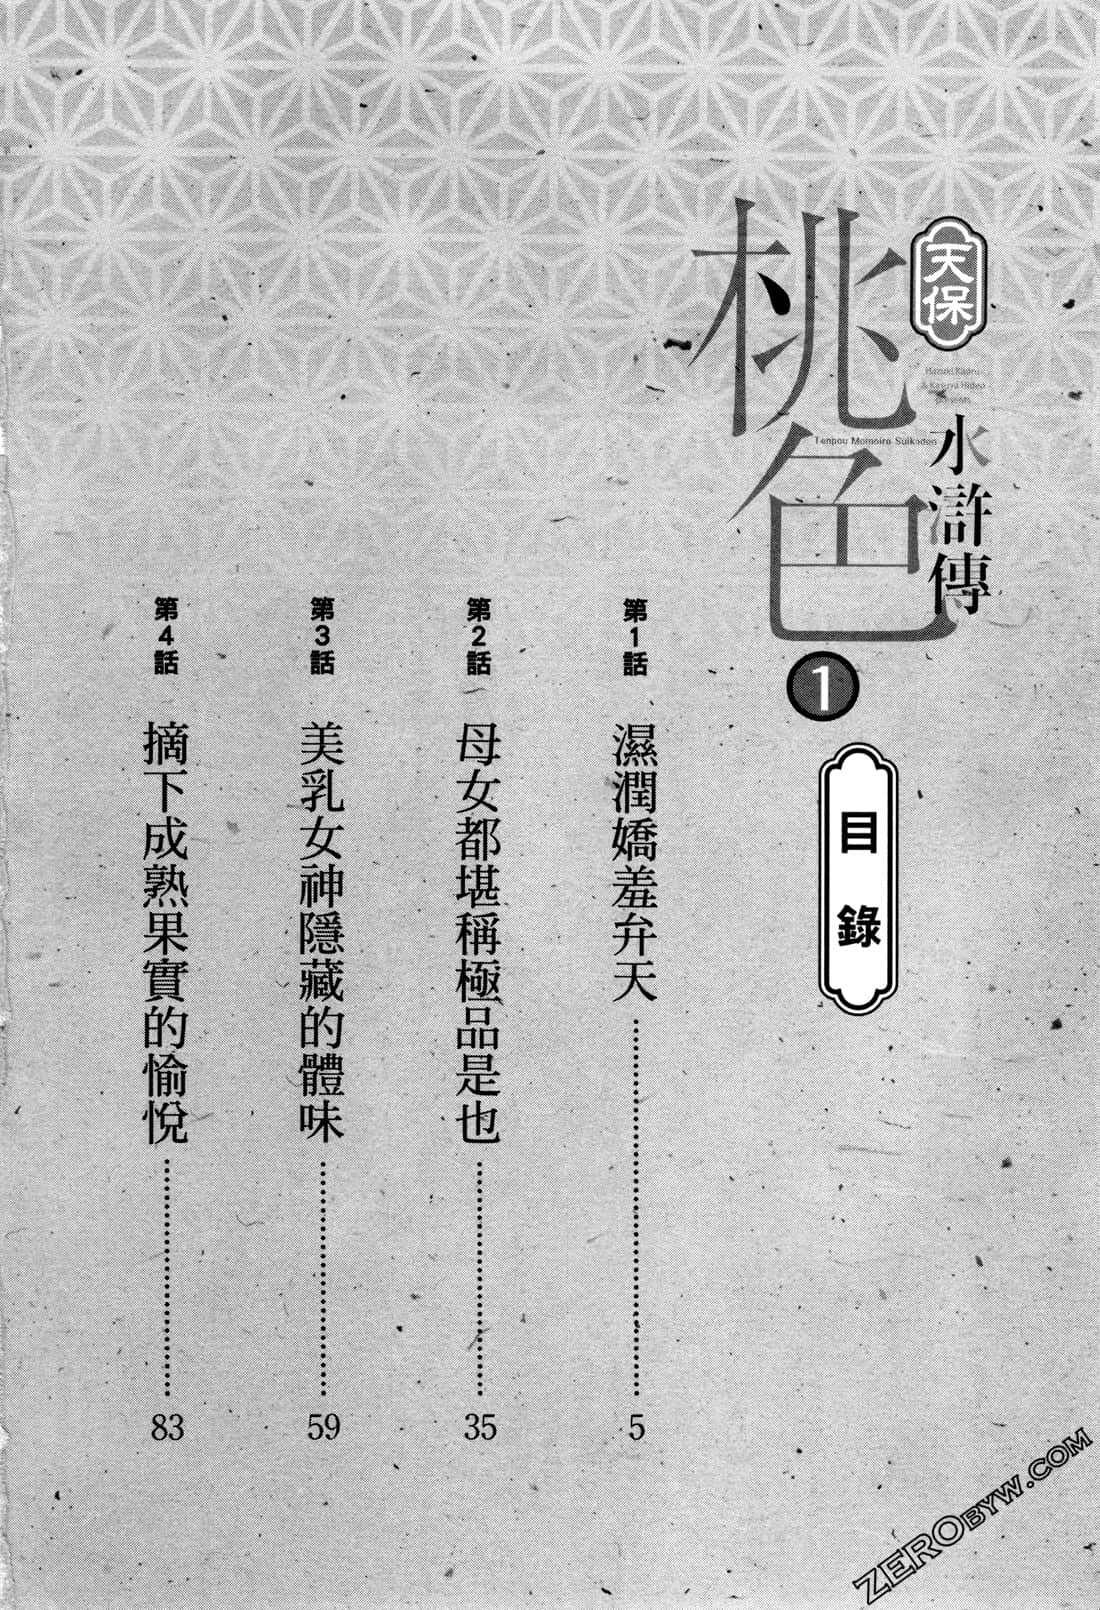 天保
桃色
水滸傳
Hazuki Kaoru
& Kasuya Hideo
presents
Tenpou Momoiro Suikoden
1
目錄
第1話 濕潤嬌羞弁天 5
第2話 母女都堪稱極品是也 35
第3話 美乳女神隱藏的體味 59
第4話 摘下成熟果實的愉悅 83
ZEROBYW.COM